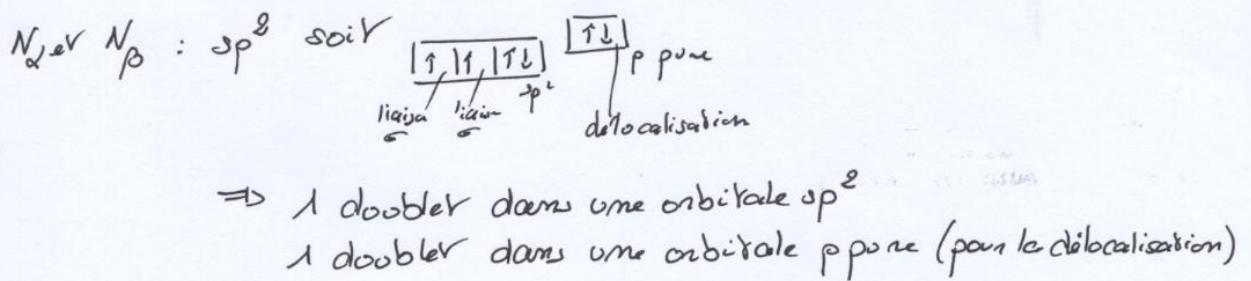 Nα et Nβ : sp² soit |↑|↑|↑↓| |↑↓| p pure
liaison σ liaison σ sp² délocalisation
⇒ 1 doublet dans une orbitale sp²
1 doublet dans une orbitale p pure (pour la délocalisation)